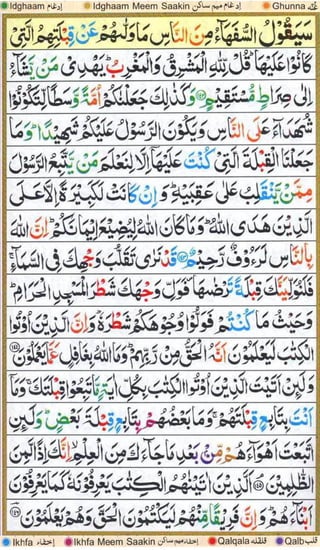 Idghaam ادغام Idghaam Meem Saakin ادغام میم ساکن Ghunna غنه
سَيَقُوْلُ السُّفَهَآءُ مِنَ النَّاسِ مَا وَلّٰىهُمْ عَنْ قِبْلَتِهِمُ الَّتِىْ
كَانُوْا عَلَيْهَا ؕ قُلْ لِّلّٰهِ الْمَشْرِقُ وَالْمَغْرِبُ ؕ يَهْدِىْ مَنْ يَّشَآءُ
اِلٰى صِرَاطٍ مُّسْتَقِيْمٍ ﴿۱۴۲﴾ وَكَذٰلِكَ جَعَلْنٰكُمْ اُمَّةً وَّسَطًا لِّتَكُوْنُوْا
شُهَدَآءَ عَلَى النَّاسِ وَيَكُوْنَ الرَّسُوْلُ عَلَيْكُمْ شَهِيْدًا ؕ وَمَا
جَعَلْنَا الْقِبْلَةَ الَّتِىْ كُنْتَ عَلَيْهَآ اِلَّا لِنَعْلَمَ مَنْ يَّتَّبِعُ الرَّسُوْلَ
مِمَّنْ يَّنْقَلِبُ عَلٰى عَقِبَيْهِ ؕ وَاِنْ كَانَتْ لَكَبِيْرَةً اِلَّا عَلَى
الَّذِيْنَ هَدَى اللّٰهُ ؕ وَمَا كَانَ اللّٰهُ لِيُضِيْعَ اِيْمَانَكُمْ ؕ اِنَّ اللّٰهَ
بِالنَّاسِ لَرَءُوْفٌ رَّحِيْمٌ ﴿۱۴۳﴾ قَدْ نَرٰى تَقَلُّبَ وَجْهِكَ فِى السَّمَآءِ ۚ
فَلَنُوَلِّيَنَّكَ قِبْلَةً تَرْضٰىهَا ۪ فَوَلِّ وَجْهَكَ شَطْرَ الْمَسْجِدِ الْحَرَامِ ؕ
وَحَيْثُ مَا كُنْتُمْ فَوَلُّوْا وُجُوْهَكُمْ شَطْرَهٗ ؕ وَاِنَّ الَّذِيْنَ اُوْتُوا
الْكِتٰبَ لَيَعْلَمُوْنَ اَنَّهُ الْحَقُّ مِنْ رَّبِّهِمْ ؕ وَمَا اللّٰهُ بِغَافِلٍ عَمَّا يَعْمَلُوْنَ ﴿۱۴۴﴾
وَلَئِنْ اَتَيْتَ الَّذِيْنَ اُوْتُوا الْكِتٰبَ بِكُلِّ اٰيَةٍ مَّا تَبِعُوْا قِبْلَتَكَ ۚ وَمَآ
اَنْتَ بِتَابِعٍ قِبْلَتَهُمْ ۚ وَمَا بَعْضُهُمْ بِتَابِعٍ قِبْلَةَ بَعْضٍ ؕ وَلَئِنِ
اتَّبَعْتَ اَهْوَآءَهُمْ مِّنْ بَعْدِ مَا جَآءَكَ مِنَ الْعِلْمِ ۙ اِنَّكَ اِذًا لَّمِنَ
الظّٰلِمِيْنَ ﴿۱۴۵﴾ اَلَّذِيْنَ اٰتَيْنٰهُمُ الْكِتٰبَ يَعْرِفُوْنَهٗ كَمَا يَعْرِفُوْنَ
اَبْنَآءَهُمْ ؕ وَاِنَّ فَرِيْقًا مِّنْهُمْ لَيَكْتُمُوْنَ الْحَقَّ وَهُمْ يَعْلَمُوْنَ ﴿۱۴۶﴾
Ikhfa اخفاء Ikhfa Meem Saakin اخفاء میم ساکن Qalqala قلقله Qalb قلب